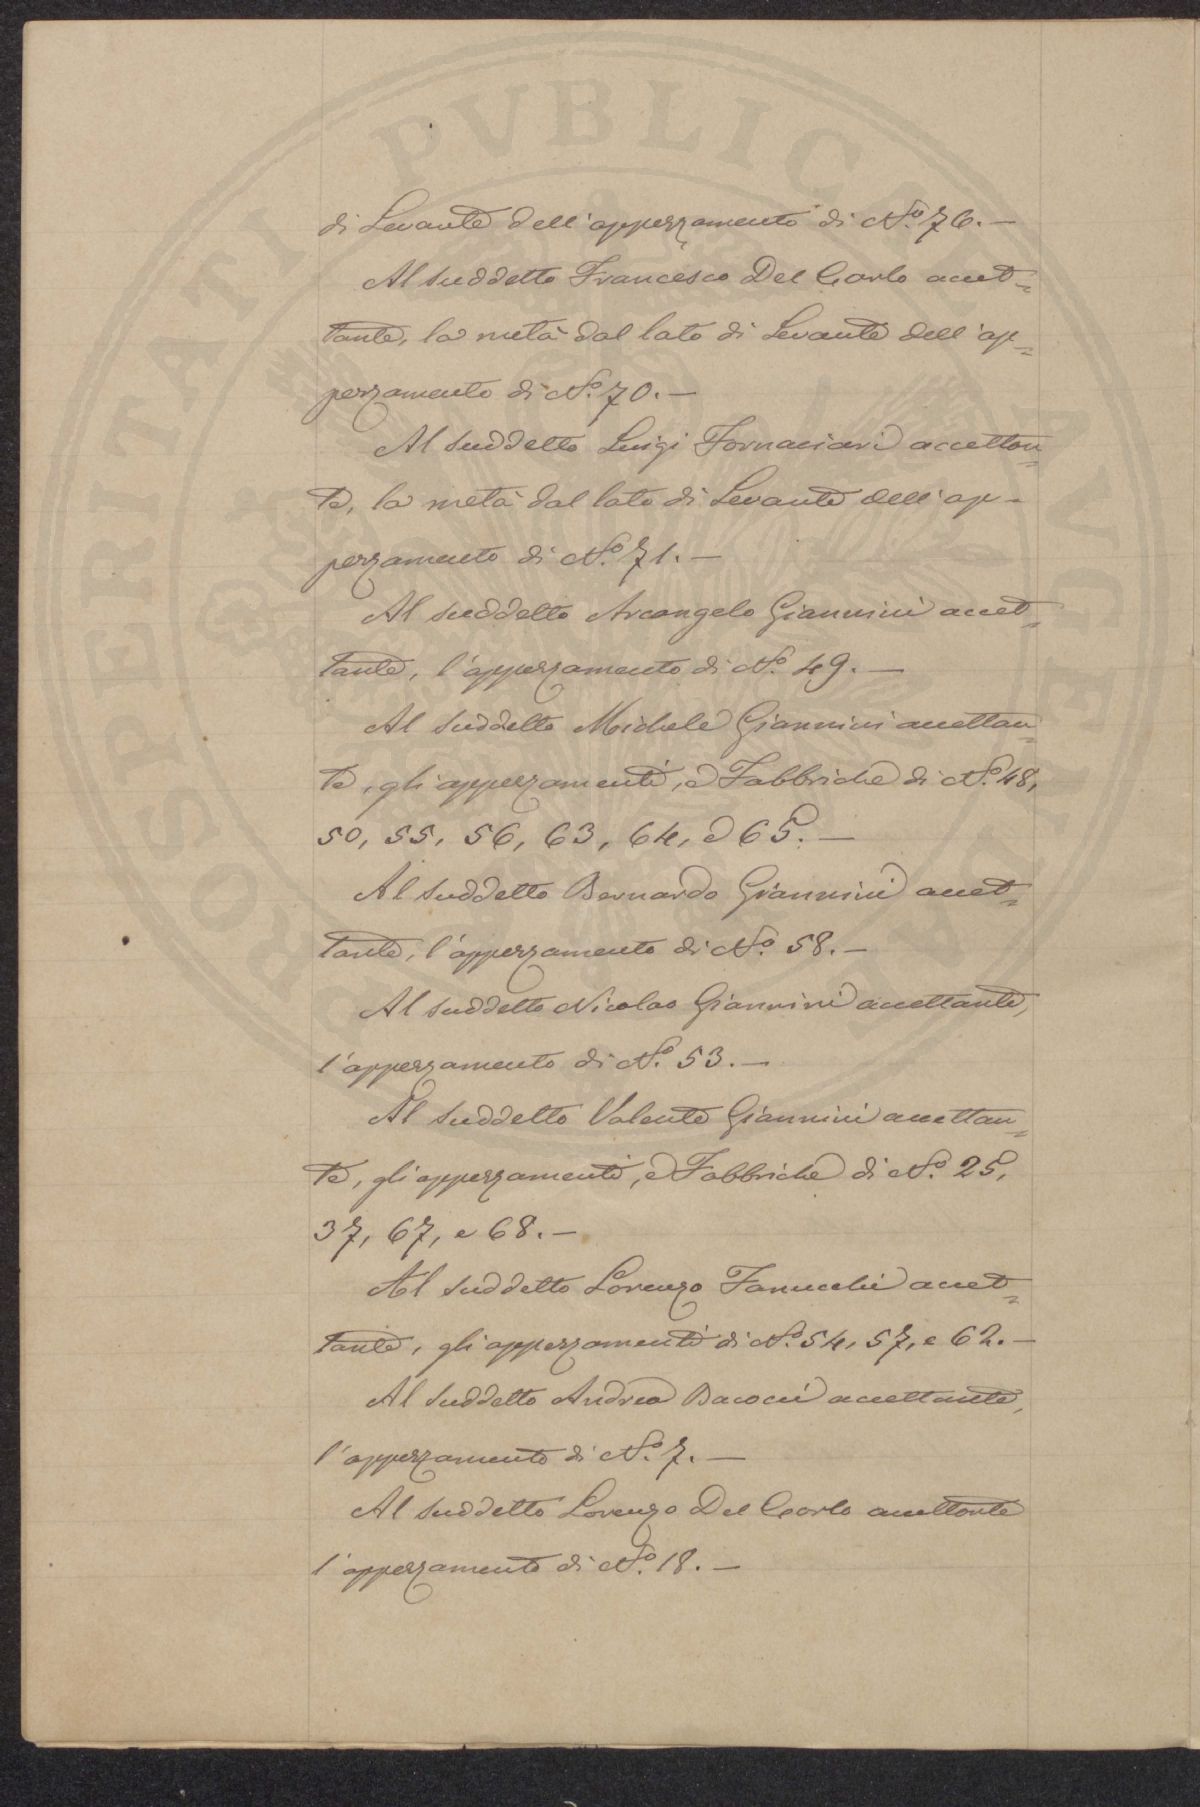 di Levante dell'apperzamento di No. 76. —
Al suddetto Francesco Del Carlo accet=
tante, la metà dal lato di Levante dell'ap=
perzamento di No. 70. —
Al suddetto Luigi Fornaciari accettan=
te, la metà dal lato di Levante dell'ap=
perzamento di No. 71. —
Al suddetto Arcangelo Giannini accet=
tante, l'apperzamento di No. 49. —
Al suddetto Michele Giannini accettan=
te, gli apperzamenti, e Fabbriche di No. 48,
50, 55, 56, 63, 64, e 65. —
Al suddetto Bernardo Giannini accet=
tante, l'apperzamento di No. 58. —
Al suddetto Nicolao Giannini accettante,
l'apperzamento di No. 53. —
Al suddetto Valente Giannini accettan=
te, gli apperzamenti, e Fabbriche di No. 25,
37, 67, e 68. —
Al suddetto Lorenzo Fanucchi accet=
tante, gli apperzamenti di No. 54, 57, e 62. —
Al suddetto Andrea Bacocci accettante,
l'apperzamento di No. 7. —
Al suddetto Lorenzo Del Carlo accettante
l'apperzamento di No. 18. —